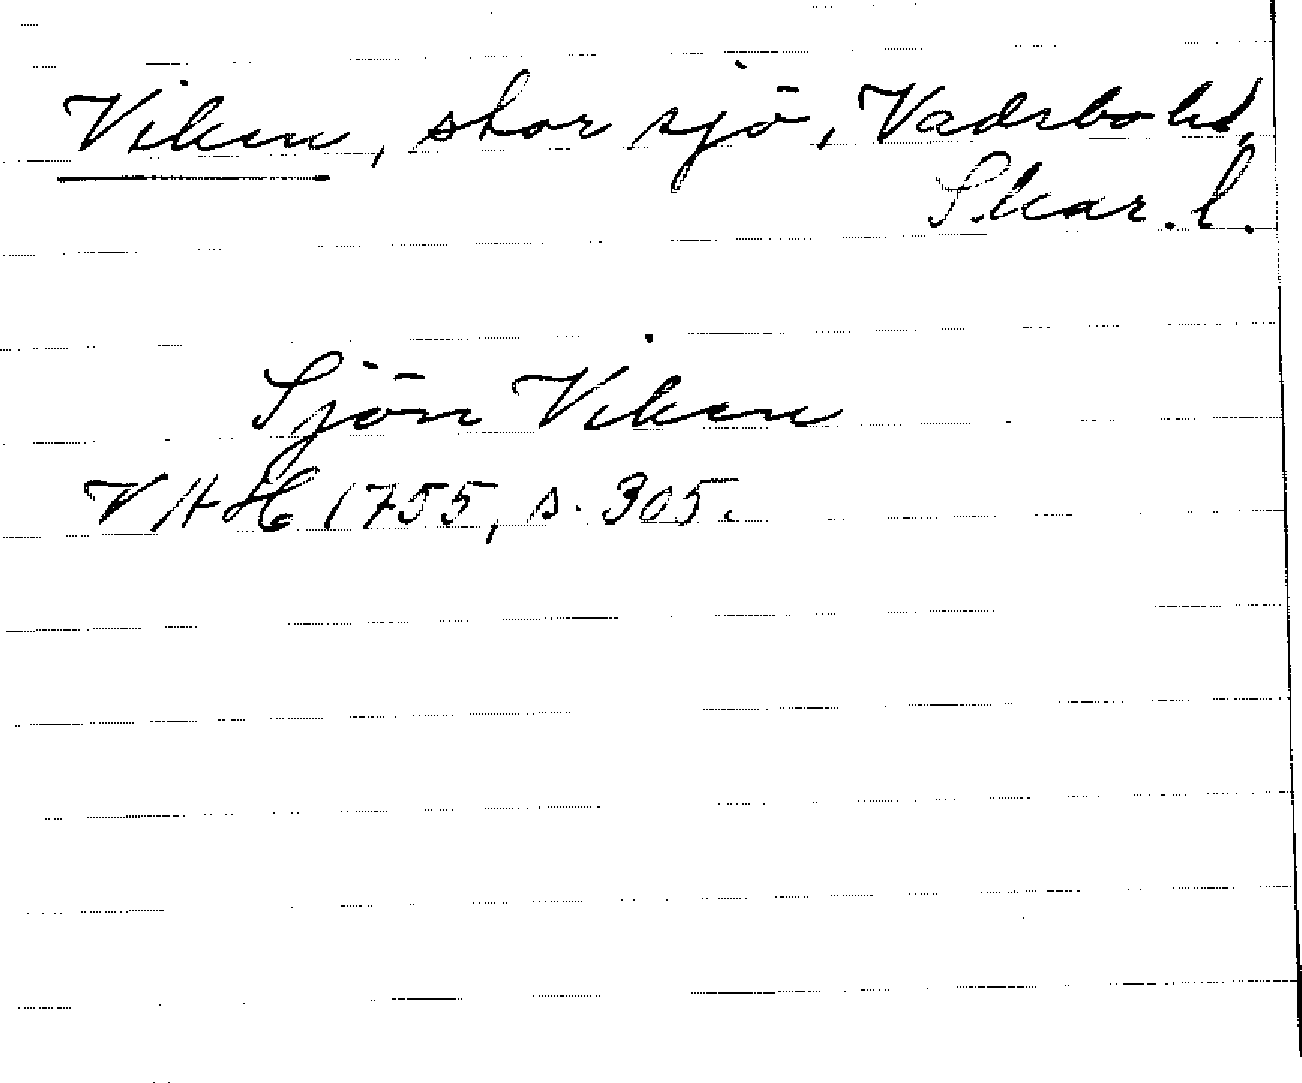 Viken, stor sjö, Vadsbo hd,
Skar. l.
Sjön Viken
VAH 1755, s. 305.